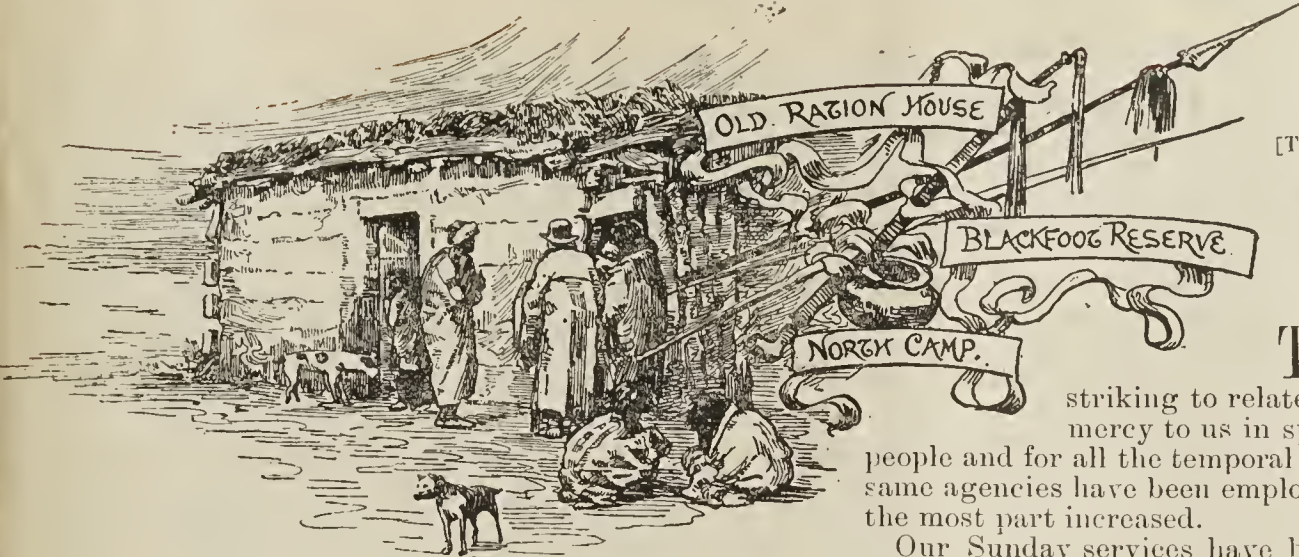 OLD RATION HOUSE
BLACKFOOT RESERVE
NORTH CAMP.
striking to relate
mercy to us in
people and for all the temporal
same agencies have been
the most part increased.
Our Sunday services have